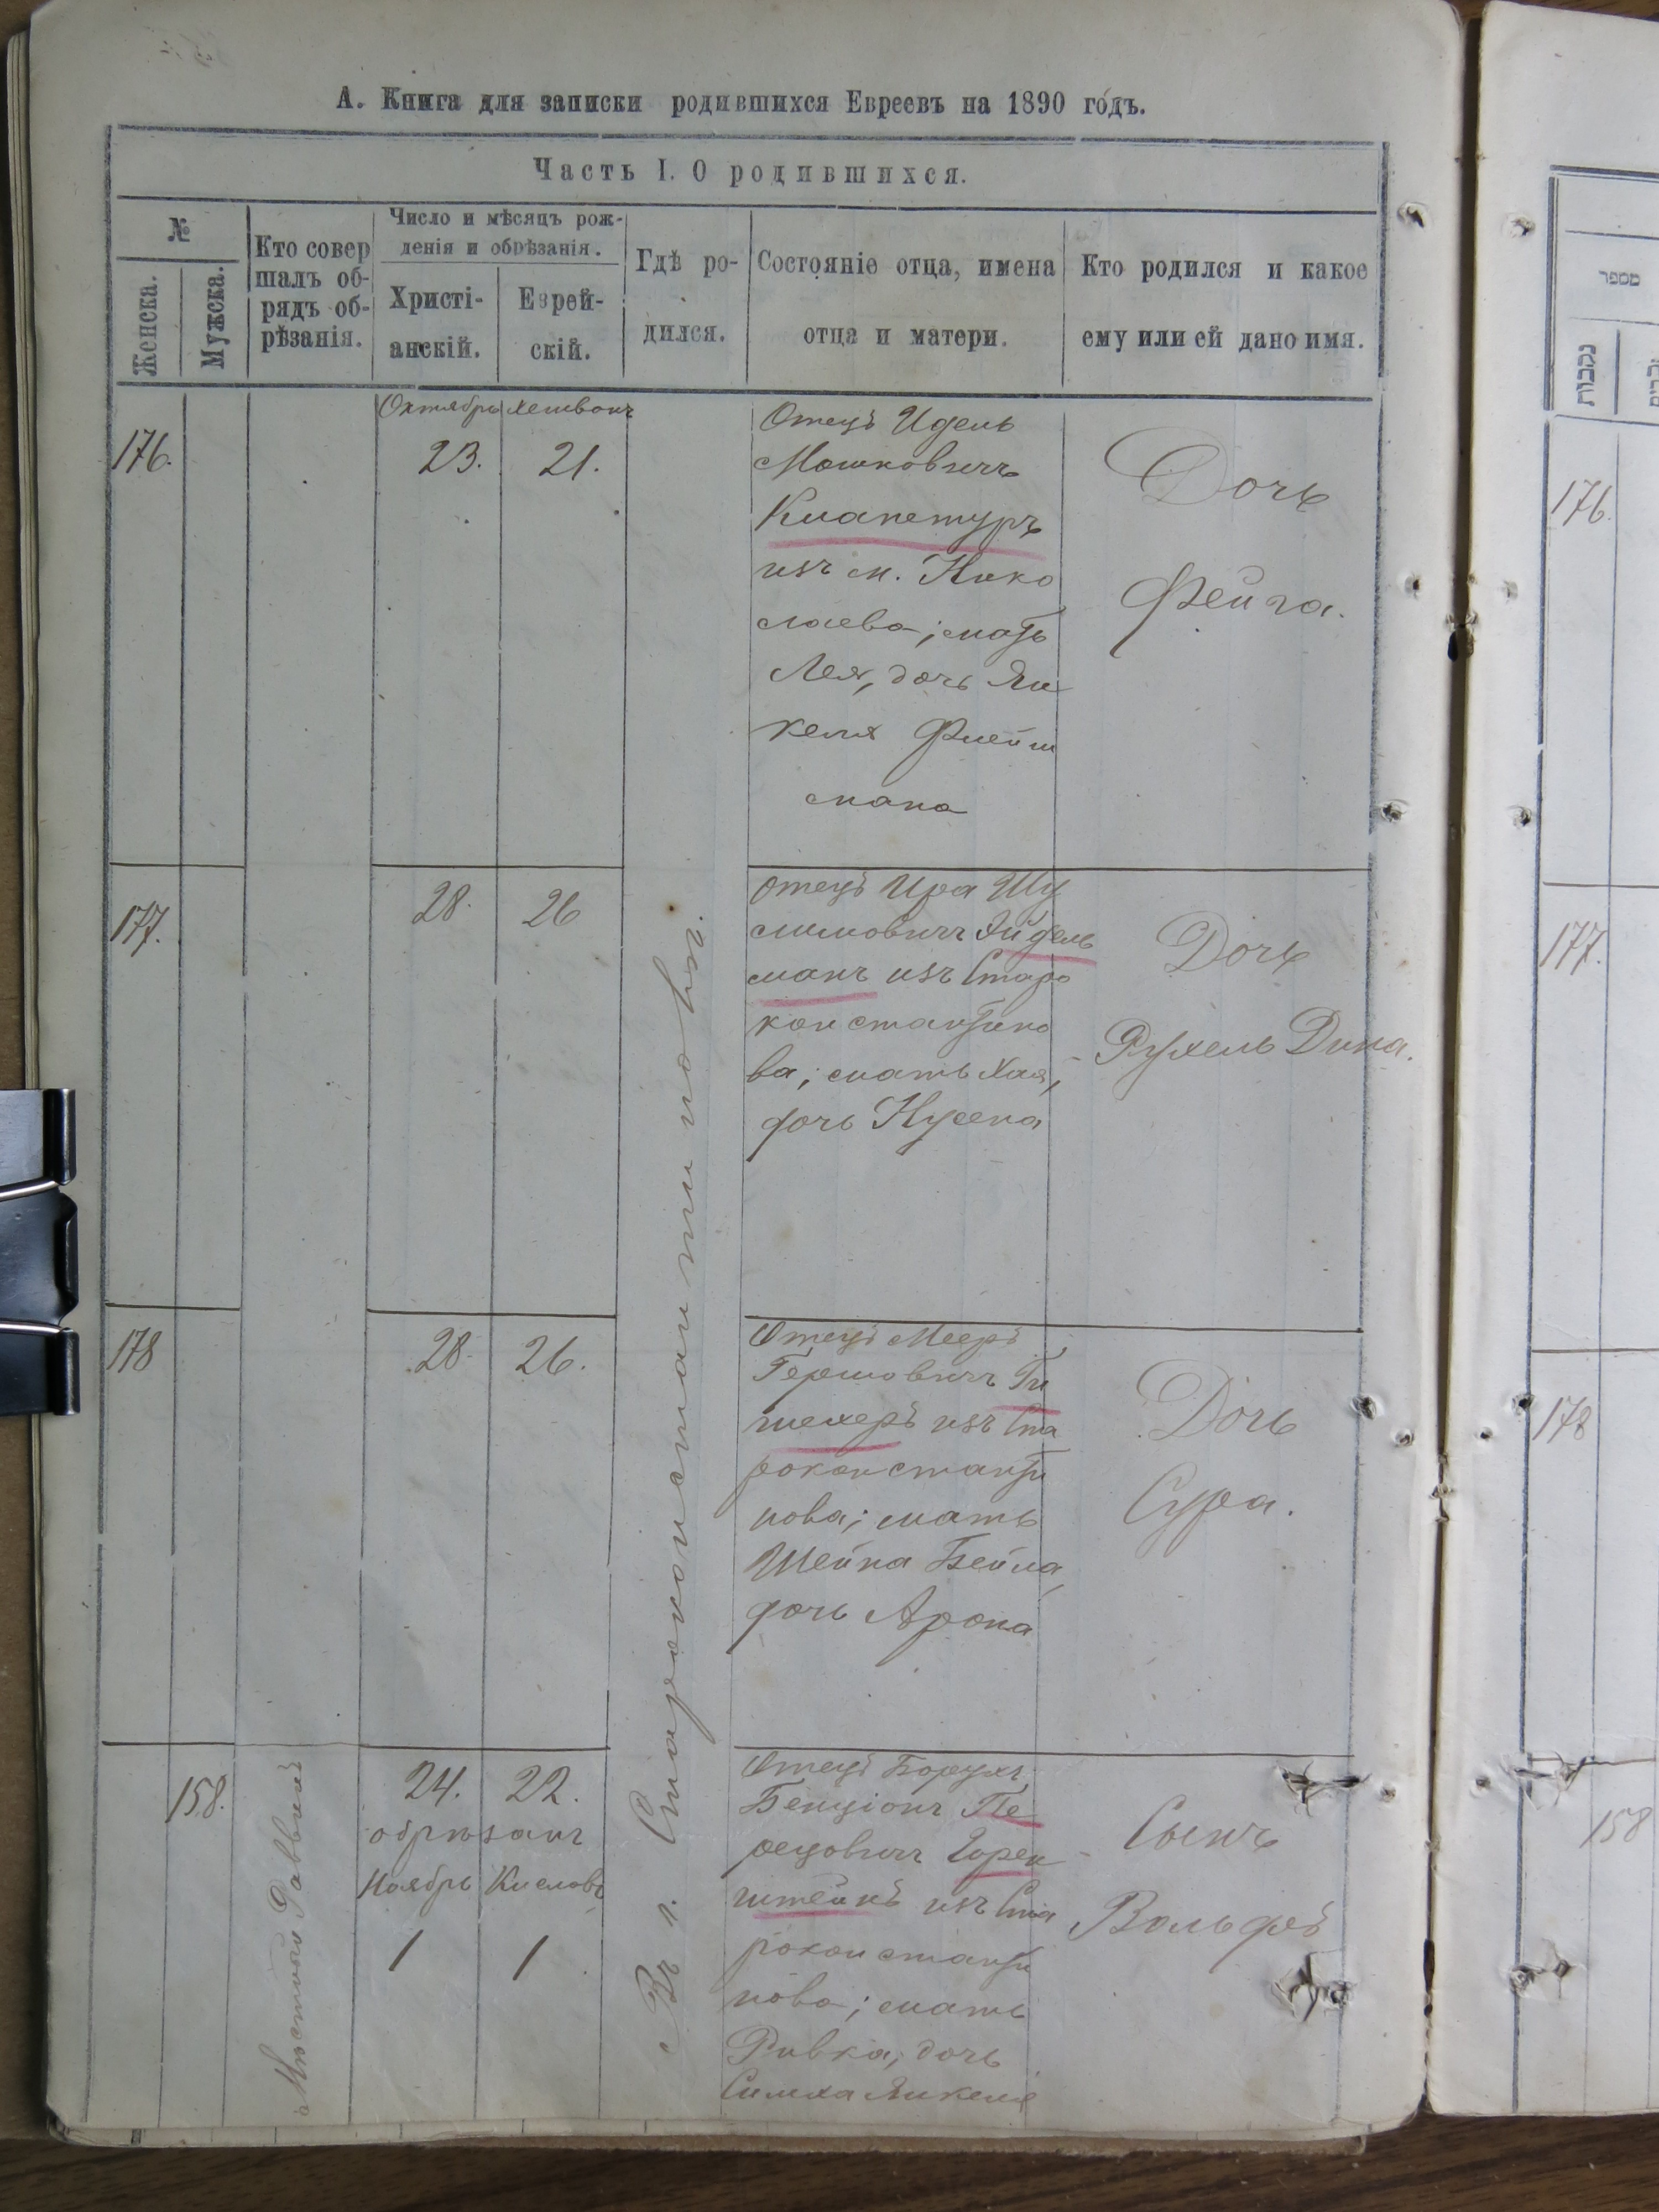 А. Книга для записки родившихся Евреевъ на 1890 годъ.
Часть I. О родившихся.
№
Женска.
Мужска.
Кто совер
шалъ об-
рядъ об-
рѣзанія.
Число и мѣсяцъ рож-
денія и обрѣзанія.
Христі-
анскій.
Еврей-
скій.
Гдѣ ро-
дился.
Состояніе отца, имена
отца и матери.
Кто родился и какое
ему или ей дано имя.
176.
Октябрь
23.
Хешвонъ
21.
Отецъ Идель
Мошковичъ
Клапетуръ
изъ м. Нико
лаева; мать
Лея, дочь Ян
келя Флейш
мана
Дочь
Фейга.
177.
28.
26
Отецъ Ицa Шу
лимовичъ Айдель
манъ изъ Старо
константино
ва; мать Хая,
дочь Нусена
Дочь
Рухель Дина.
178
28.
26.
Отецъ Мееръ
Гершовичъ Ти
шехеръ изъ Ста
роконстанти
нова; мать
Шейна Бейла,
дочь Арона
Дочь
Сура.
158.
Мѣстный Раввинъ
24.
22.
обрѣзанъ
Ноябрь
Кислова
1
1
Въ г. Староконстантиновѣ.
Отецъ Борухъ
Бенціонъ Пе
рецовичъ Горен
штейнъ изъ Ста
роконстанти
нова; мать
Ривка, дочь
Симха Янкеля
Сынъ
Вольфъ
מספר
נקבות
176.
177.
178
158